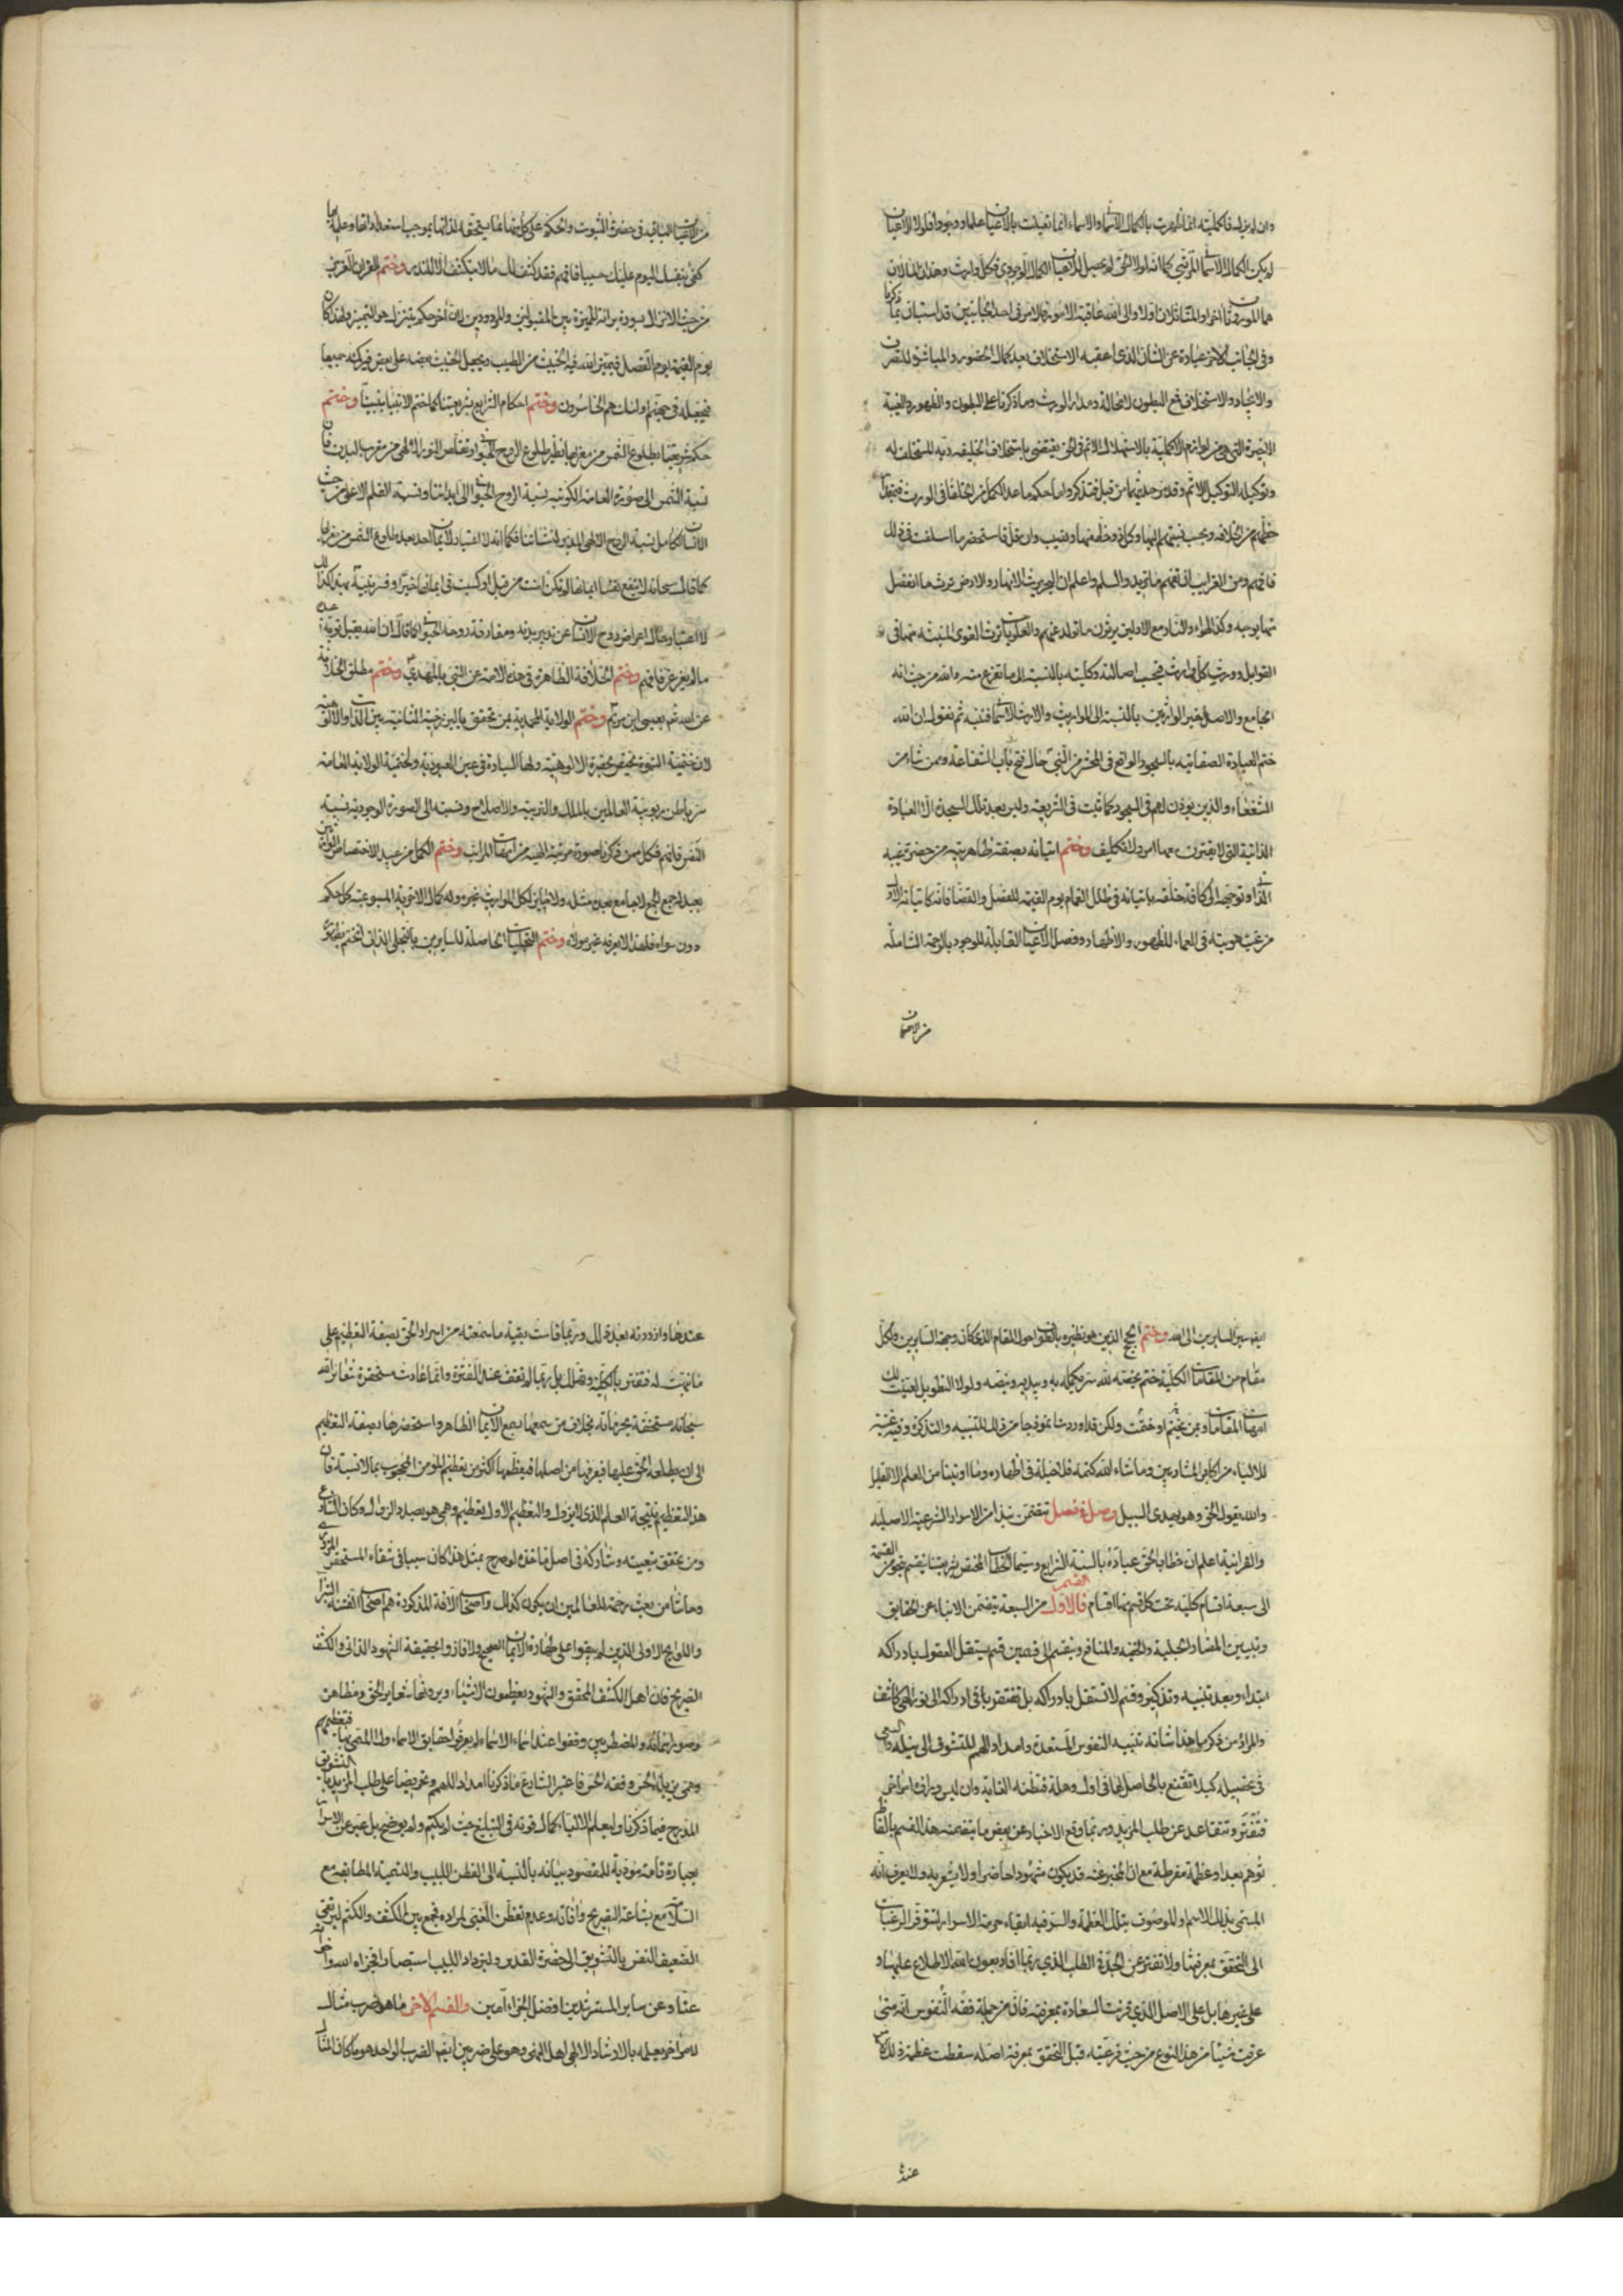 وان لم يزل فاكمليته انما ظهرت بالكمال الاسمائى والاسماء انما تعينت بالاعيان علما ووجودا فلولا الاعيان
لم يكن الكمال الاسمائى كما انه لولا الحق لم يحصل للاعيان الكمال الوجودى فكل وارث وهذان المالان
هما الموروثان اخرا والمتماثلان اولا والى الله عاقبة الامور فالامر فى احد الجانبين قد استبان بما ذكرنا
وفى الجانب الاخر عبارة عن الشان الذى اعقبه الاستخلاف بعد كمال الحضور والمباشرة للتصرف
والايجاد والاستخلاف مع البطون لا محالة ومدار الورث وما ذكرنا على البطون والظهور والغيبة
الاخيرة التى هى من لوازم الاكملية بالاستهلاك الاتم فى الحق يقتضى باستخلاف الخليفه ربه المستخلف له
وتوكيله التوكيل الاتم وقد مر حديثهما من قبل فتذكر واما حكم ما عدا الكمل من الخلفا فى الورث فبقدر
حظهم من الخلافه وبحسب نسبتهم اليها وكل ذو حظ منها ونصيب وان قل فاستحضر ما اسلفت فى ذلك
فافهم ومن الغرايب ان تفهم ما تريد والسلم واعلم ان البحر يرث الانهار والارض ترث ما انفصل
منها بوجه وكذا الهواء والنار مع الاولين يرثون ما تولد عنهم والعلويات ترث القوى المنبثه منها فى
القوابل وورث كل وارث بحسب اصالته وكليته بالنسبة الى ما تفرع منه والله من حيث انه
الجامع والاصل خير الوارثين بالنسبة الى المواريث والارث الاسمائى فتنبه ثم نقول ان الله
ختم العبادة الصفاتيه بالسجود الواقع فى المحشر من النبى حال فتح باب الشفاعة وممن شاء من
الشفعاء والذين يؤذن لهم فى السجود كما ثبت فى الشريعة وليس بعد تلك السجدة الا العبادة
الذاتية التى لا يقترن معها امر ولا تكليف وختم اتيانه بصفة ظاهريته من حضرة غيبه
الذاتى وتوجهه الى كافة خلقه باتيانه فى ظلل الغمام يوم القيمة للفصل والقضا فانه كاتيانه الاول
من غيب هويته فى العماء للظهور والاظهار وفصل الاعيان القابلة للوجود بالرحمة الشاملة
من الاعيان
من الاعيان الباقيه فى حضرة الثبوت والحكم على كل منهما بما يستحقه لذاتها بموجب استعداداتها وعلمه بها
كفى بنفسك اليوم عليك حسيبا فافهم فقد كشف لك ما لا ينكشف الا للندر وختم القرآن العزيز
من حيث الانزال بسورة براءة المميزة بين المقبولين والمردودين لان اخر حكم يتنزل هو التميز ولهذا كان
يوم القيمة يوم الفصل فيميز الله فيه الخبيث من الطيب ويجعل الخبيث بعضه على بعض فيركمه جميعا
فيجعله فى جهنم اولئك هم الخاسرون وختم احكام الشرايع بشريعتنا كما ختم الانبيا بنبينا وختم
حكم شريعتنا بطلوع الشمس من مغربها نظير طلوع الروح الحيوانى وتقلص النور الالهى من مغرب البدن فان
نسبة الشمس الى صورة العامة الكونيه نسبة الروح الحيوانى الى ابداننا ونسبة القلم الاعلى من حيث
الانسان الكامل نسبة الروح الالهى المدبر لنشأتنا فكما انه لا اعتبار لايمان احد بعد طلوع الشمس من مغربها
كما قال سبحانه لا ينفع نفسا ايمانها لم تكن امنت من قبل او كسبت فى ايمانها خيرا وقرينة بينة كذلك
لا اعتبار حال اعراض روح الانسان عن تدبير بدنه ومفارقة روحه الحيوانى كما قال ان الله يقبل توبة عبده
ما لم يغرغر فافهم وختم الخلافة الظاهرة فى هذه الامة عن النبى بالمهدى وختم مطلق الخلافة
عن الله ثم بعيسى ابن مريم وختم الولاية المحمدية بمن تحقق بالبرزخية الثانية بين الذات والالوهية
لان ختمية النبوة تختص بحضرة الالوهية ولها السيادة فى عين العبودية ولختمية الولاية العامة
سر باطن ربوبية العالمين بالملك والتربية والاصلاح ونسبته الى الصورة الوجودية نسبة
النفس فافهم فكل من ذكرنا صورة مرتبة الهيه من امهات المراتب وختم الكمل من عبيد الاختصاص الوارثين
بعبد اجمع الجمع لا جامع بعده مثله ولا حايز لكل المواريث غيره وله كمال الاخرية المستوعبه كل حكم
دون سواه فلهذا لا يعرفه غير مولاه وختم التجليات الحاصلة للسايرين بالتجلى الذاتى الختم بظهوره
ايضا سير السايرين الى الله وختم الحجج الذين هو نظيره بالطواف حول المقام الذى كان وجهة السايرين ولكل
مقام من المقامات الكلية ختم يخصه لله سر يكمله به ويبديه ويخصه ولولا التطويل لعينت لك
امهات المقامات وبمن يختم او ختمت ولكن قد اوردت انموذجا من ذلك للتنبيه والتذكرة وفيه غنية
للالباء من اكابر المشاربين وما شاء الله كتمه فلا حيلة فى اظهاره وما اوتينا من العلم الا القليل
والله يقول الحق وهو يهدى السبيل وصل فى فصل يتضمن نبذا من الاسرار الشرعية الاصلية
والقرانية اعلم ان خطاب الحق عباده بالسنة الشرايع وسيما الخطاب المختص بشريعتنا ينقسم بنحو من القسمة
الى سبعة اقسام كلية تحت كل قسم منها اقسام فالقسم الاول من السبعة يتضمن الانباء عن الحقايق
وتبيين المضار الجلية والخفيه والمنافع وينقسم الى قسمين قسم يستقل العقول بادراكه
ابتداء وبعد تنبيه وتذكير وقسم لا تستقل بادراكه بل تفتقر بافى ادراكه الى نور الهى كاشف
والمراد من ذكر ما هذا شانه تنبيه النفوس المستعدة وامداد الهمم للتشوف الى نيله والسعى
فى تحصيله كيلا تقتنع بالحاصل لها فى اول وهلة فتظنه الغاية وان ليس وراه امر اخر
فتفتر وتتقاعد عن طلب المزيد وربما وقع الاخبار عن بعض ما يتضمنه هذا القسم بالفاظ
توهم بعدا وعظمة مفرطة مع ان المخبر عنه قد يكون مشهودا حاضرا ولا يشعر به ولا يعرف انه
المسمى بذلك الاسم او الموصوف بتلك العظمة والسر فيه ابقاء حرمة الاسرار لتتوفر الرغبات
الى التحقق بمعرفتها ولا تفتر عن الجد فى الطلب الذى ربما افاد بعون الله الاطلاع عليها و
على غيرها بل على الاصل الذى قرنت السعادة بمعرفته فان من جملة فقه النفوس انه متى
عرفت شيئا من هذا النوع من حيث فرعيته قبل التحقق بمعرفة اصله سقطت عظمة ذلك
عنده
عندها وازدرته بعد ذلك وربما قاست بقية ما سمعته من اسرار الحق بصفة التعظيم على
ما تنبهت له ففتر بالكلية وتضل بل ربما لم تقف عند الفترة وانما عادت مستحقرة شعائر الله
سبحانه مستخفة بحرماته بخلاف من سمعها بسمع الايمان الظاهر واستحضرها بصفة التعظيم
الى ان يطلعه الحق عليها فيعرفها من اصلها فيعظمها اكثر من تعظيم المؤمن المحجوب بما لا نسبة فان
هذا التعظيم نتيجة العلم الذى لا يزول والتعظيم الاول تعظيم وهمى هو بصدد الزوال وكان الشارع
ومن تحقق بتبعيته وشاركه فى اصل ماخذه لو صرح بمثل هذا كان سببا فى شقاء المستحقر المزدرى
وحاشا من بعث رحمة للعالمين ان يكون كذلك واصحاب الافة المذكورة هم اصحاب الفتنة البتراء
واللوايح الاولى الذين لم يبقوا على طهارة الايمان الصحيح ولا فازوا بحقيقة الشهود الذاتى والكشف
الصريح فان اهل الكشف المحقق والشهود يعظمون الاشياء ويرونها شعاير الحق ومظاهر
وصور اسمائه والمضطربين وقفوا عند اسماء الاسماء لم يعرفوا حقايق الاسماء ولا المسمى بها فتعظيمهم
وهمى يزيله الحس وفقه الحس فاعتبر الشارع ما ذكرنا امداد اللهمم وتحريضا على طلب المزيد بالتشويق
المدرج فيما ذكرنا وليعلم الالباء كمال قوته فى التبليغ حيث لم يكتم ولم يوضح بل عبر عن الاسرار
بعبارة تامة مؤدية للمقصود بيانه بالنسبة الى الفطن اللبيب والتسمية المطابقه مع
السلامة مع بشاعة التصريح وافاته وعدم تفطن الغبى لمراده فجمع بين الكشف والكتم ليرتقى
الضعيف النفس بالتشويق الى حضرة القدس وليزداد اللبيب استبصارا فجزاه الله واخوانه
عنا وعن ساير المسترشدين افضل الجزاء امين والقسم الاخر ما هو ضرب مثال
لامر اخر يعلمه بالارشاد الالهى اهل النهى وهو على ضربين ايضا الضرب الواحد هو ما كان المثال